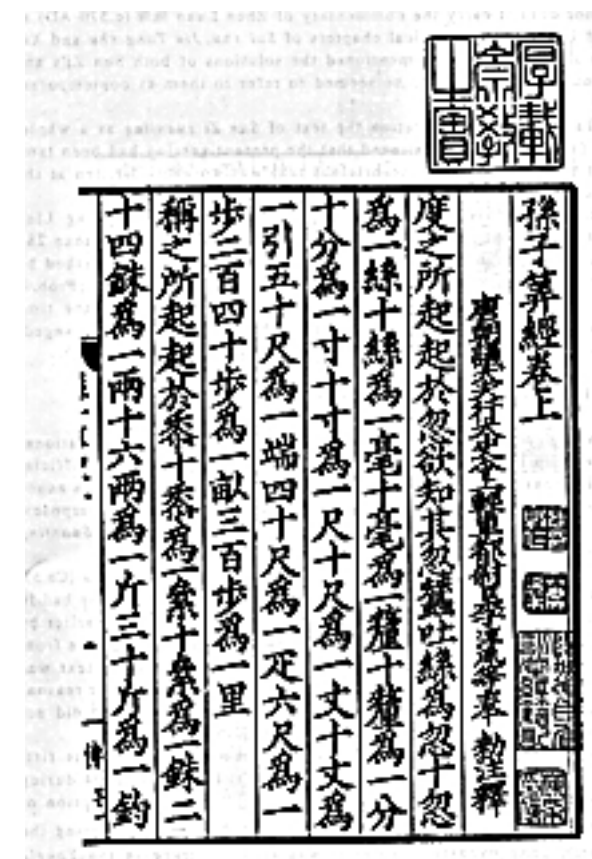 孫子算經卷上
唐朝議大夫行太史令上輕車都尉臣李淳風等奉 勅注釋
度之所起起於忽欲知其忽蠶吐絲爲忽十忽
爲一絲十絲爲一毫十毫爲一釐十釐爲一分
十分爲一寸十寸爲一尺十尺爲一丈十丈爲
一引五十尺爲一端四十尺爲一疋六尺爲一
步二百四十步爲一畝三百步爲一里
稱之所起起於黍十黍爲一絫十絫爲一銖二
十四銖爲一兩十六兩爲一斤三十斤爲一鈞